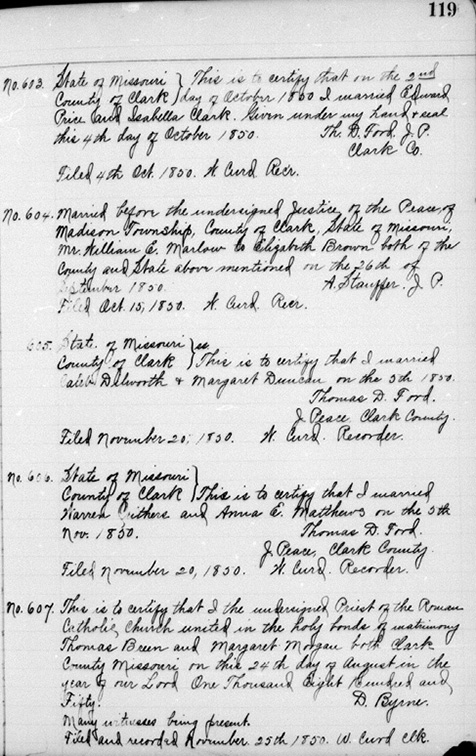 119
No.603. State of Missouri } This is to certify that on the 2nd
County of Clark } day of October 1850 I married Edward
Price and Isabella Clark. Given under my hand & seal
this 4th day of October 1850. Th. D. Ford, J. P.
Clark Co.
Filed 4th Oct. 1850. W. Curd Recr.
No. 604. Married before the undersigned Justice of the Peace, of
Madison Township, County of Clark, State of Missouri,
Mr. William C. Marlow to Elizabeth Brown both of the
County and State above mentioned on the 26th of
September 1850. A. Stauffer. J. P.
Filed Oct. 15, 1850. W. Curd. Recr.
605. State of Missouri } ss
County of Clark } This is to certify that I married
Caleb Dilworth & Margaret Duncan on the 5th 1850.
Thomas D. Ford.
J. Peace Clark County.
Filed November 20, 1850. W. Curd. Recorder.
No. 606. State of Missouri }
County of Clark } This is to certify that I married
Warren and Anna E. Matthews on the 5th
Nov. 1850. Thomas D. Ford.
J. Peace, Clark County.
Filed November 20, 1850. W. Curd. Recorder.
No. 607. This is to certify that I the undersigned Priest of the Roman
Catholic Church united in the holy bonds of matrimony
Thomas Breen and Margaret Morgan both Clark
County Missouri on this 24th day of August in the
year of our Lord One Thousand Eight Hundred and
Fifty. D. Byrne.
Many witnesses being present.
Filed and recorded November 25th 1850. W. Curd Clk.